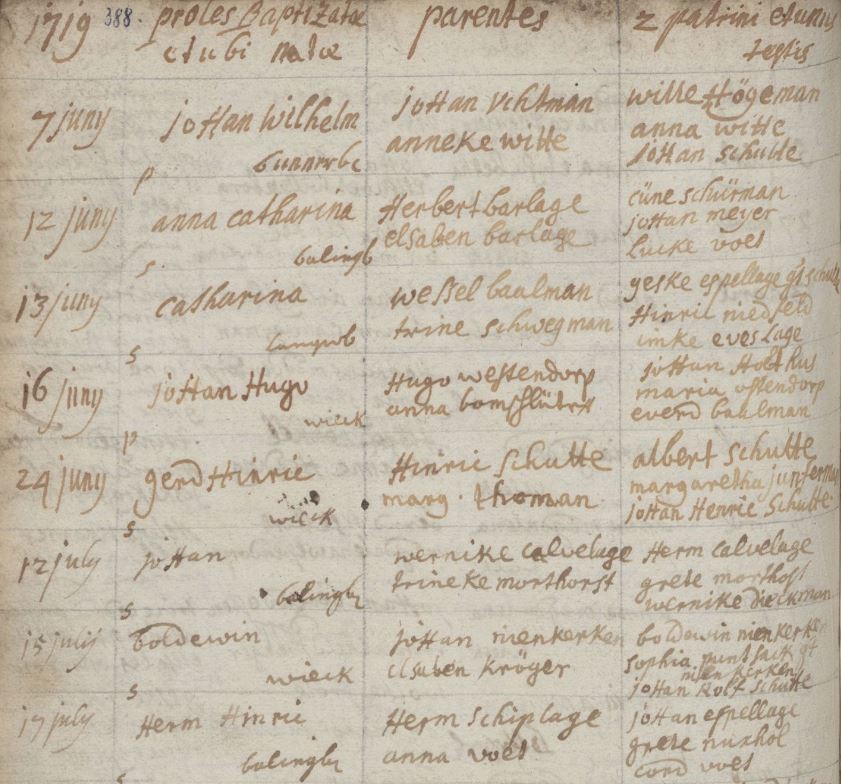 1719 388. proles Baptizatæ parentes 2 patrini et unus
et ubi natæ testis
7 juny joHan Wilhelm joHan Vchtman witte Högeman
anneke witte anna witte
joHan schutte
p
12 juny anna catharina Herbert barlage cüne schürman
elsaben barlage joHan meyer
lucke voet
s
13 juny catharina wessel baalman geske espellage
trine schwegman Hinric niedfeld
imke eveslage
s
16 juny joHan Hugo Hugo westendorp joHan HoltHus
wieck anna maria ostendorp
everd baalman
p
24 juny gerd Hinric Hinric schutte albert schutte
marg. thoman margaretha
wieck joHan Henric schutte
s
12 july joHan wernike calvelage Herm calvelage
trineke morthorst grete morthost
wernike dieckman
s
15 julij boldewin joHan nienkerken boldewin nienkerken
wieck elsaben kröger sophia
nienkerken
joHan Rolf schutte
s
17 july Herm Hinric Herm schiplage joHan espellage
anna voet grete
cord voet
s